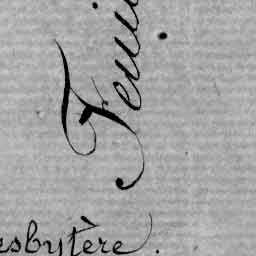 Feui
esbytère.